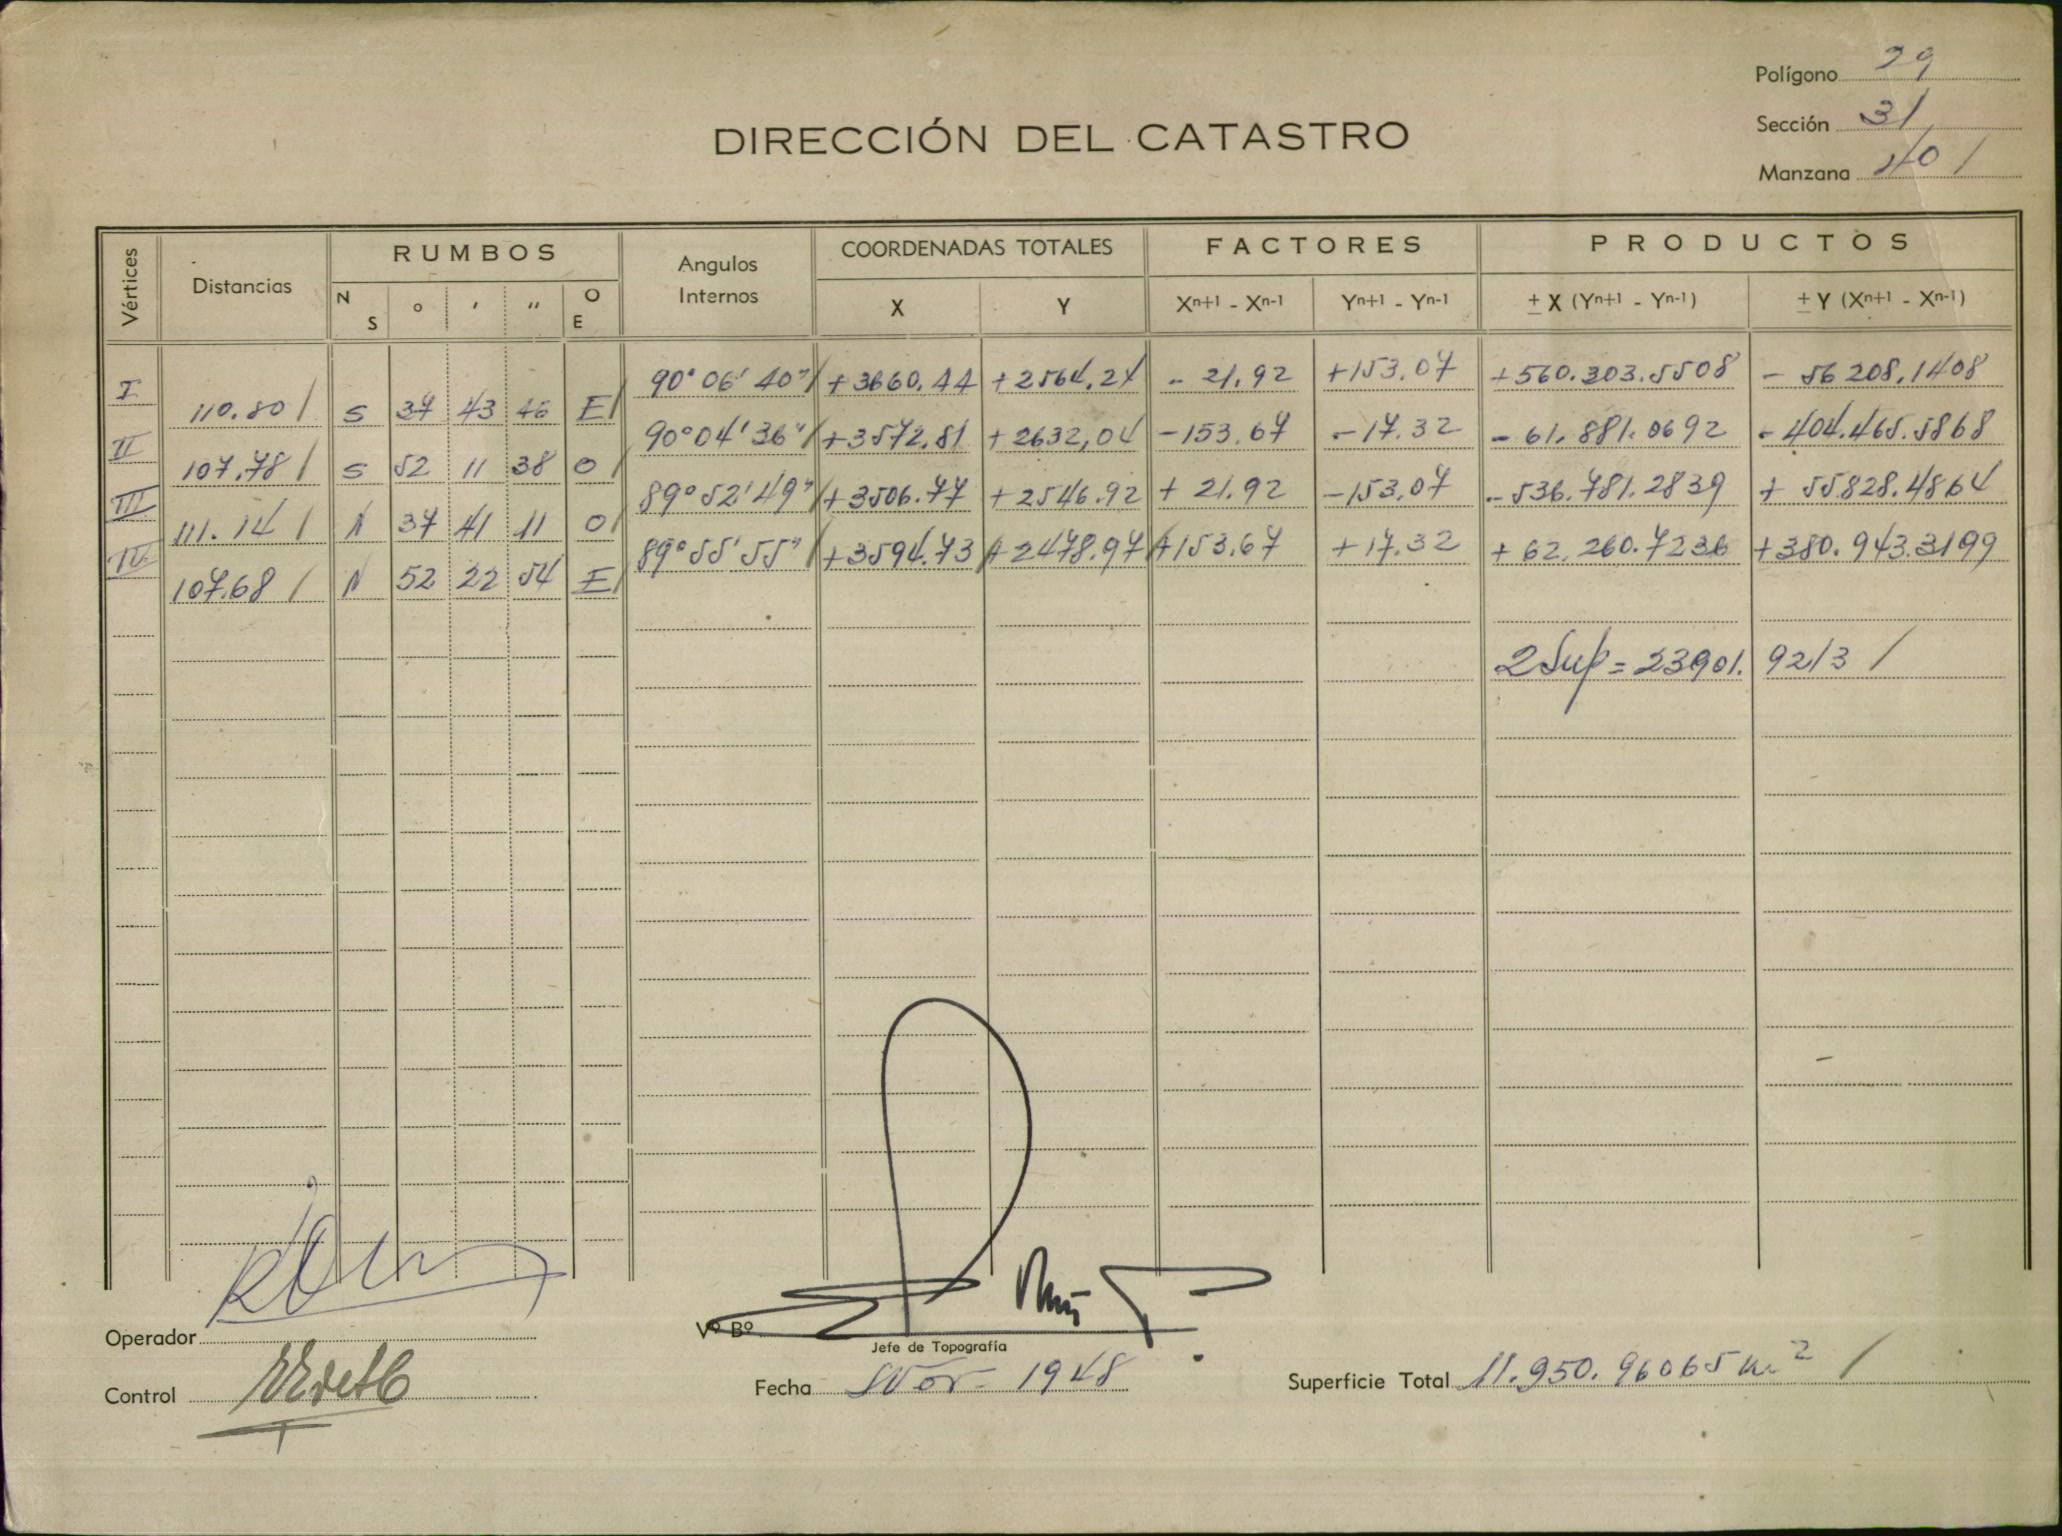 Polígono 29
DIRECCIÓN DEL CATASTRO
Sección 31
Manzana
Vértices Distancias RUMBOS Angulos Internos COORDENADAS TOTALES FACTORES PRODUCTOS
N S ° ' " O E X Y Xn+1 - Xn-1 Yn+1 - Yn-1 ± X (Yn+1 - Yn-1) ± Y (Xn+1 - Xn-1)
I 90° 06' 40" / +3660.44 +2564.24 - 21.92 +153.07 +560.303.5508 - 56 208.1408
110.80 / S 37 43 46 E /
II 90° 04' 36" / +3572.81 +2632,04 -153.67 -17.32 - 61.881.0692 - 404.465.5868
107.78 / S 52 11 38 O /
III 89° 52' 49" / +3506.77 +2546.92 + 21.92 -153.07 - 536.781.2839 + 55.828.4864
111.14 / N 37 41 11 O /
IV 89° 55' 55" / +3594.73 / +2478.97 / +153.67 +17.32 + 62.260.7236 +380.943.3199
107.68 / N 52 22 54 E /
2 Sup = 23901.9213 /
Operador
Vº Bº
Jefe de Topografía
Control
Fecha Nov - 1948
Superficie Total 11.950.96065 m² /